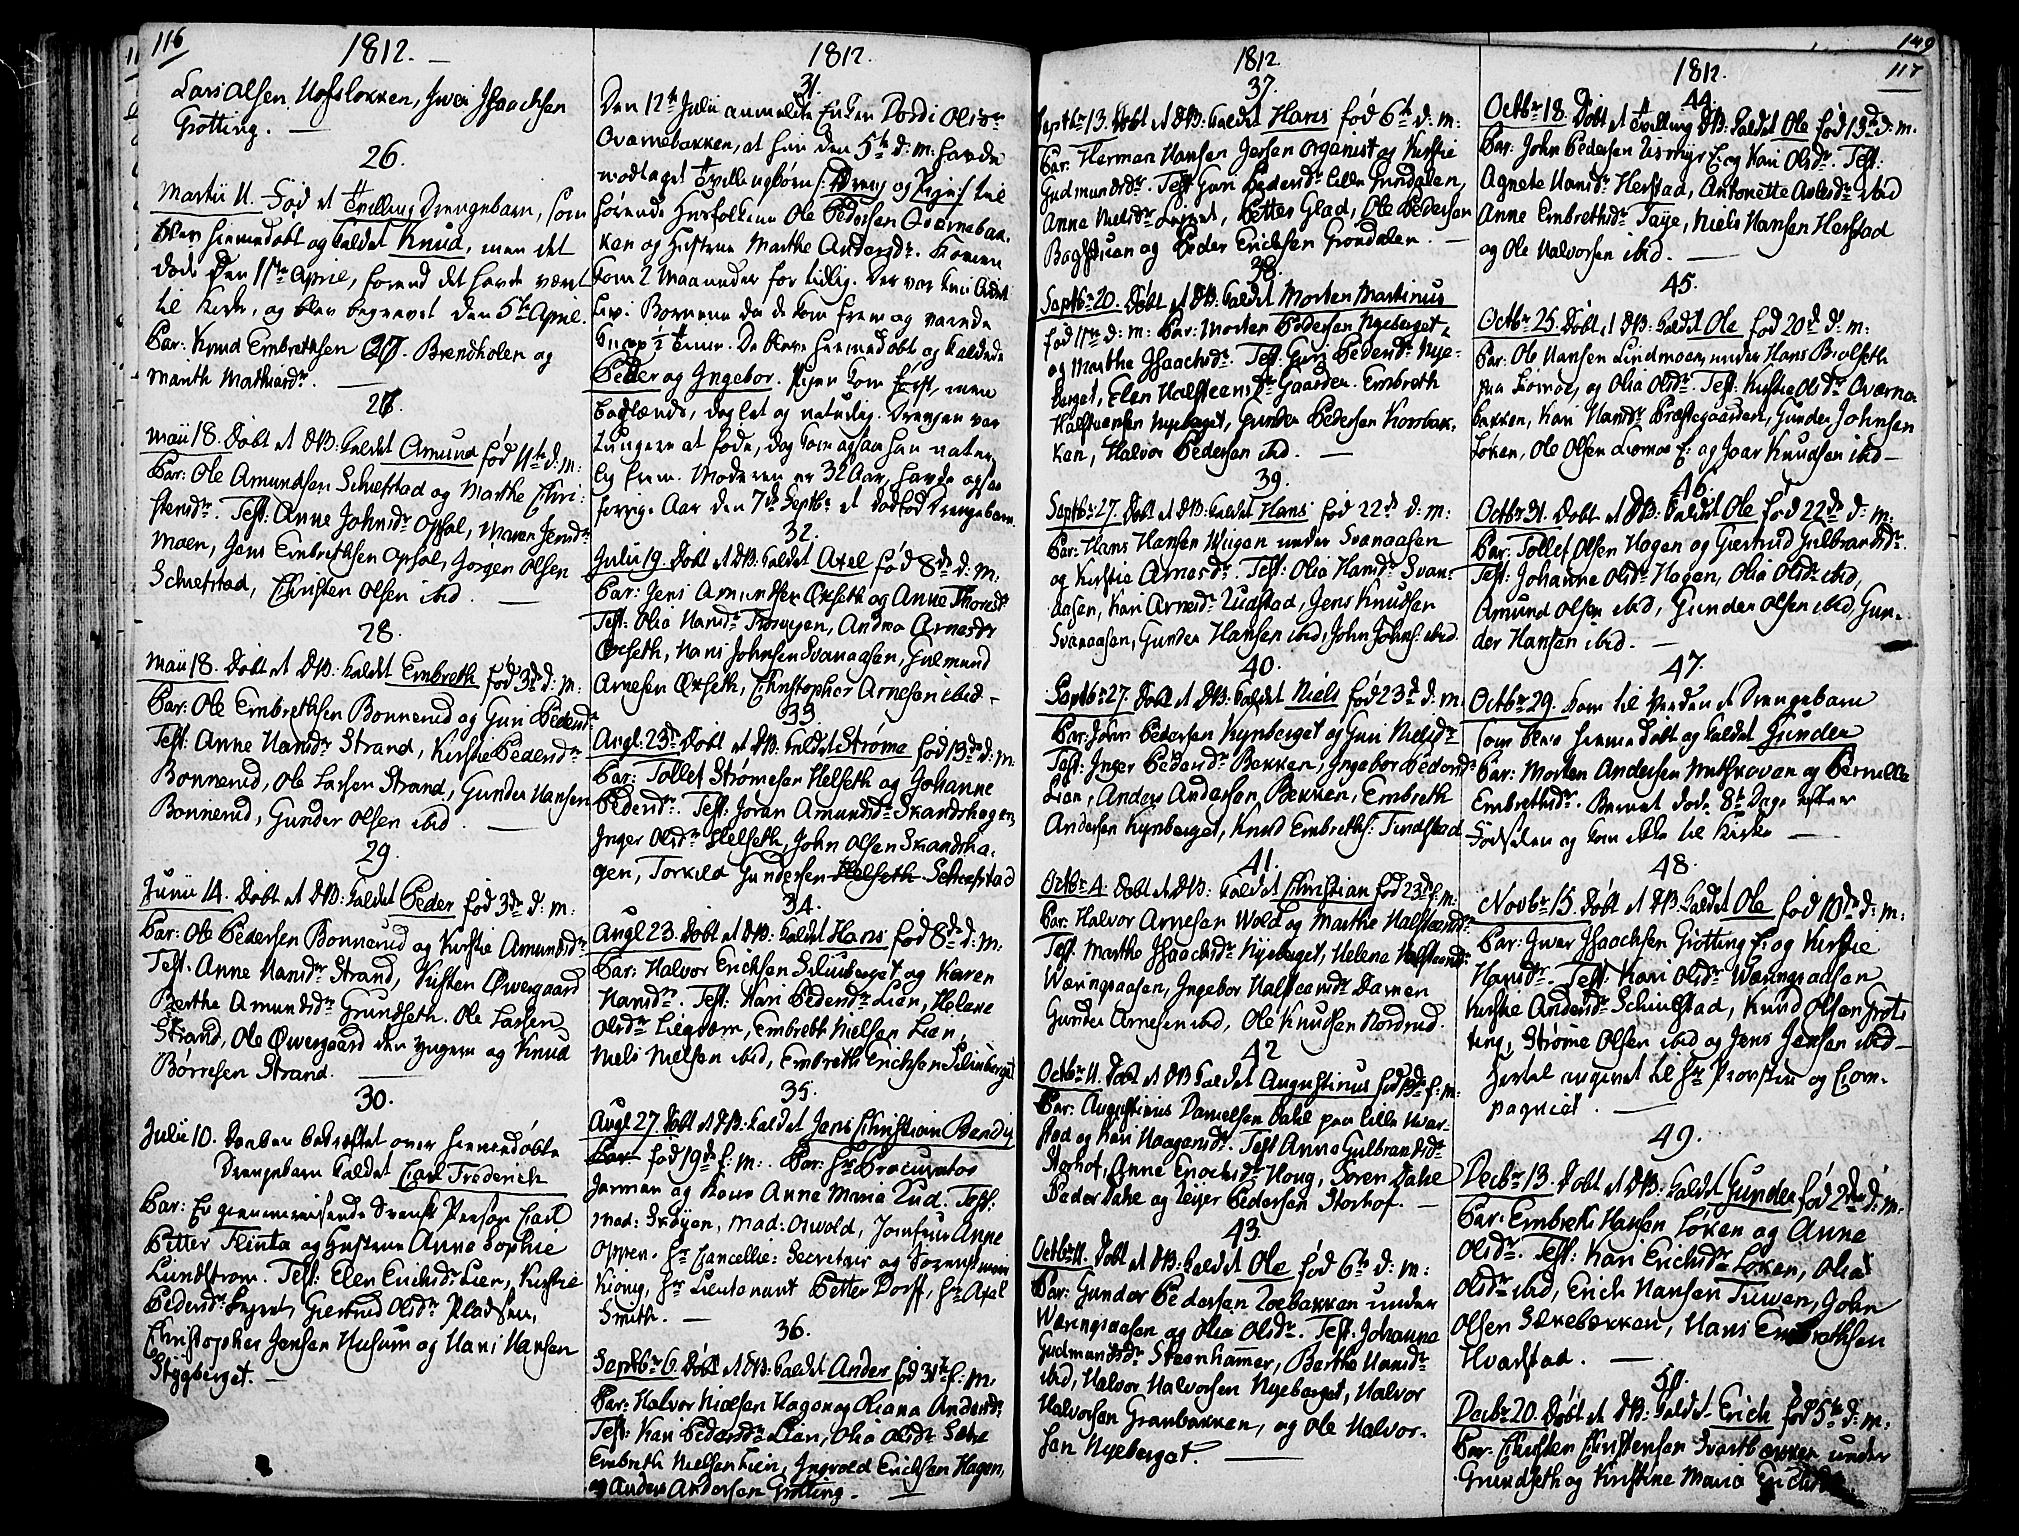 116
1812.
Lars Olsen Hofsløkken, Iwer Isaachsen
Grøtting.
26.
Martii 11. Fød et Tvilling Drengebarn, som
blev hiemedøbt og kaldet Knud, men det
døde den 1ste April, forend det havde været
til Kirke, og blev begravet den 5te April.
Par: Knud Embrethsen Brendholen og
Marith
27.
Maii 18. Døbt et DB: kaldet Amund fød 11te d: m:
Par: Ole Amundsen Schiefstad og Marthe Chri-
stensdr. Test: Anne Johnsdr Opsal, Maren Jensdr
Moen, Jens Embrethsen Opsal, Jørgen Olsen
Schiefstad, Christen Olsen ibid.
28.
Maii 18. Døbt et DB: kaldet Embreth fød 3de d: m:
Par: Ole Embrethsen Bonnerud og Guri Pedersdr
Test: Anne Hansdr Strand, Kirstie Pedersdr
Bonnerud, Ole Larsen Strand, Gunder Hansen
Bonnerud, Gunder Olsen ibid.
29.
Junii 14. Døbt et DB: kaldet Peder fød 3de d: m:
Par: Ole Pedersen Bonnerud og Kirstie Amundsdr
Test. Anne Hansdr Strand, Kirsten Øwergaard
Berthe Amundsdr Grundseth. Ole Larsen
Strand, Ole Øwergaard den yngere og Knud
Børresen Strand.
30.
Julii 10. Daaben bekræftet over hiemmedøbte
Drengebarn kaldet Carl Friderich
Par: En giennemreisende Svensk Person Carl
Petter Flinta og Hustrue Anne Sophie
Lundstrøm. Test: Elen Erichsdr Lien, Kirstie
Pedersdr Legret, Giertrud Olsdr Pladsen,
Christopher Jensen Husum og Hans Hansen
Stygberget.
1812.
31.
Den 12te Julii anmeldte Enken Dordi Olsdr
Qvernebakken, at hun den 5te d: m: havde
modtaget Tvillingbørn /: Dreng og Pige :/ til
hørende Husfolkene Ole Pedersen Qvernebak-
ken og Hustrue Marthe Andersdr. Konen
kom 2 Maaneder for tidlig. Der var knap Andet
Liv i Børnene da de kom frem og varede
knap ½ Time. De bleve hiemedøbt og kaldede
Peder og Ingebor. Pigen kom først, men
baglænds, dog let og naturlig. Drengen var
tungere at føde, dog kom ogsaa han natur-
lig frem. Moderen er 32 Aar, havde ogsaa
forrige Aar den 7de Septbr et dødfød Drengebarn.
32.
Julii 19. Døbt et DB: kaldet Axel fød 8de d: m:
Par: Jens Amundsen Ørseth og Anne Thoresdr
Test: Olia Hansdr Andrea Arnesdr
Ørseth, Hans Johnsen Svanaasen, Gulmund
Arnesen Ørseth, Christopher Arnesen ibid -
33.
Augl. 23de Døbt et DB: kaldet Strøme fød 13de d: m.
Par: Tollef Strømesen Helseth og Johanne
Pedersdr. Test: Joran Amundsdr Skandshagen,
Inger Olsdr Helseth, John Olsen Skandsha-
gen, Torkild Gundersen Helseth Schiefstad
34.
Augl 23. Døbt et DB: kaldet Hans fød 8de d: m:
Par: Halvor Erichsen Silinberget og Karen
Hansdr. Test: Kari Pedersdr Lien, Helene
Olsdr Embreth Nielsen Lien,
Niels Nielsen ibid, Embreth Erichsen Silinberget
35.
Augl 27. Døbt et DB: kaldet Jens Christian Bendix
Par: fød 19de f: m. Par: Hr Procurator
Jarman og Frue Anne Maria Rud. Test:
Mad: Skøyen, Mad: Oswold, Jomfrue Anne
Oppen. Hr Cancellie: Secretair og Sorenskriver
Kiong, Hr Lieutenant Petter Dorff, Hr Axel
Smith.
36.
Septbr 6. Døbt et DB: kaldet Ander fød 31te f: m.
Par: Halvor Nielsen Hagen og Oliana Andersdr
Test: Kari Pedersdr Lien, Olia Olsdr Sætre
Embreth Nielsen Lien, Ingvold Erichsen Hagen,
og Anders Andersen Grøtting.
1812
37.
Septbr 13. Døbt et DB: kaldet Hans fød 6te d: m:
Par: Herman Hansen Jersen Organist og Kirstie
Gudmundsdr. Test: Guri Pedersdr Lille Grøndalen,
Anne Nielsdr Petter Glad, Ole Pedersen
Bagstuen og Peder Erichsen Grøndalen.
38.
Septbr 20. Døbt et DB: kaldet Morten Martinus
fød 11te d: m: Par: Morten Pedersen Nyeberget
og Marthe Isaachsdr. Test: Guri Pedersdr Nye-
berget, Elen Halsteensdr Gaarden. Embreth
Halsteensen Nyeberget, Gunder Pedersen Korsbak-
ken, Halvor Pedersen ibid.
39.
Septbr 27. Døbt et DB: kaldet Hans fød 22de d: m:
Par: Hans Hansen Wiigen under Svanaasen
og Kirstie Arnesdr. Test: Olia Hansdr Svan-
aasen, Kari Arnesdr Rudstad, Jens Knudsen
Svanaasen, Gunder Hansen ibid, John Johns: ibid.
40.
Septbr 27. Døbt et DB: kaldet Niels fød 23de d: m.
Par: John Pedersen Kynberget og Guri Nielsdr
Test: Inger Pedersdr Bekken, Ingebor Pedersdr
Lian, Anders Andersen Bekken, Embreth
Andersen Kynberget, Knud Embreths: Tundstad
41.
Octbr 4. Døbt et DB: kaldet Christian fød 23de f: m:
Par: Halvor Arnesen Wold og Marthe Halsteensdr
Test: Marthe Isaachsdr Nyeberget, Helene Halsteensdr
Wæringsaasen, Ingebor Halsteensdr Damen
Gunder Arnesen ibid, Ole Knudsen Nordrud.
42
Octbr 11. Døbt et DB kaldet Augustinus fød 13de f: m:
Par: Augustinus Danielsen Dahl paa Lille Hvar-
stad og Kari Haagensdr. Test Anne Gulbrandsdr
Storhof, Anne Enochsdr Houg, Søren Dahl
Peder Dahl og Peder Pedersen Storhof.
43.
Octbr 11. Døbt et DB: kaldet Ole fød 6te d: m:
Par: Gunder Pedersen Zoebakken under
Wæringsaasen og Olia Olsdr. Test: Johanne
Gudmandsdr Steenhammer, Berthe Hansdr
ibid, Halvor Halvorsen Nyeberget, Halvor
Halvorsen Granbakken, og Ole Halvor-
sen Nyeberget.
149
117
1812.
44.
Octbr 18. Døbt et Tvilling DB: kaldet Ole fød 13de d: m.
Par: John Pedersen Rismyr E: og Kari Olsdr. Test:
Agnete Hansdr Herstad, Antonette Axelsdr ibid
Anne Embrethsdr Taije, Niels Hansen Herstad
og Ole Halvorsen ibid.
45.
Octbr 25. Døbt et DB: kaldet Ole fød 20de d: m:
Par: Ole Hansen Lindmoen under Hans Bialseth
fra Lømoe, og Olia Olsdr. Test: Kirstie Olsdr Qverne-
bakken, Kari Hansdr Præstegaarden, Gunder Johnsen
Løken, Ole Olsen Lømoe E: og Joar Knudsen ibid -
46.
Octbr 31. Døbt et DB: kaldet Ole fød 22de d: m:
Par: Tollef Olsen Hagen og Giertrud Gulbrandsdr.
Test: Johanne Olsdr Hagen, Olia Olsdr ibid,
Amund Olsen ibid, Gunder Olsen ibid, Gun-
der Hansen ibid.
47.
Octbr 29. Kom til Verden et Drengebarn
som blev hiemedøbt og kaldet Gunder
Par: Morten Andersen og Pernille
Embrethsdr. Barnet døde 8te Dage efter
Fødselen og kom ikke til Kirke
48.
Novbr 15. Døbt et DB: kaldet Ole fød 10de d: m:
Par: Iwer Isaachsen Grøtting E: og Kirstie
Hansdr. Test: Kari Olsdr Wæringsaasen
Kirstie Andersdr Schiefstad, Knud Olsen Grøt-
ting, Strøme Olsen ibid og Jens Jensen ibid -
Hertel angivet til Hr Provsten og Com-
pagniet.
49.
Decbr 13. Døbt et DB: kaldet Gunder fød 2den d: m.
Par: Embreth Hansen Løken og Anne
Olsdr. Test: Kari Erichsdr Løken, Olia
Olsdr ibid, Erich Hansen Tuwen, John
Olsen Sækebækken, Hans Embrethsen
Hvarstad.
50.
Decbr 20. Døbt et DB: kaldet Erich fød 5te d: m:
Par: Christen Christensen Svartbækken under
Grundseth og Kirstine Maria